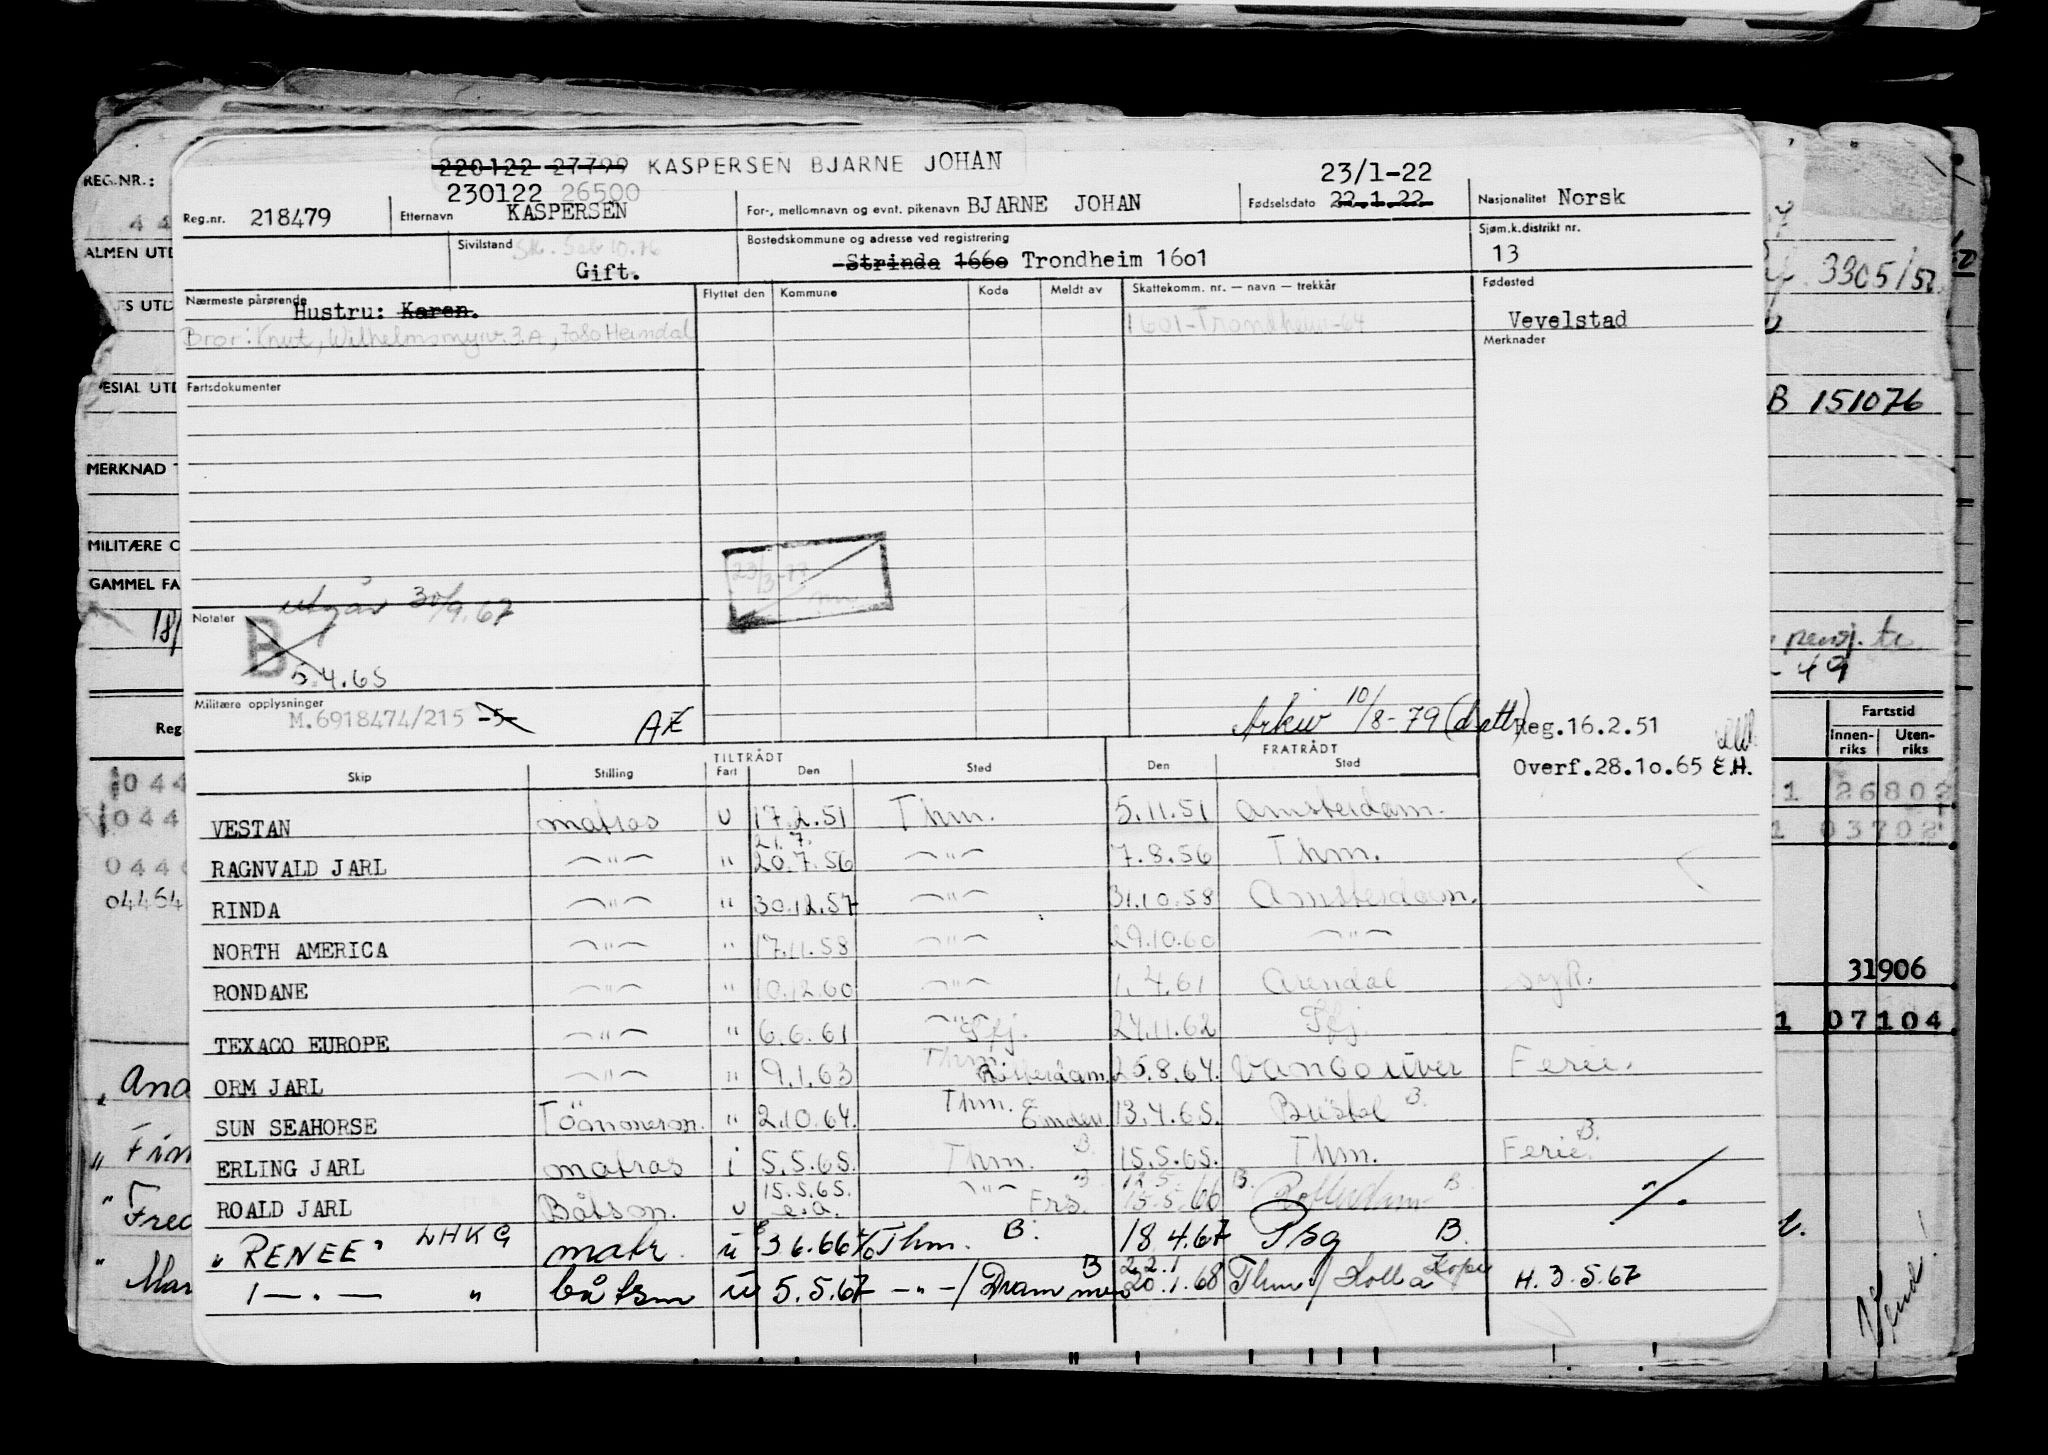 220122 27799 KASPERSEN BJARNE JOHAN
230122 26500
23/1-22
Reg.nr. 218479 Etternavn KASPERSEN For-, mellomnavn og evnt. pikenavn BJARNE JOHAN Fødselsdato 22.1.22. Nasjonalitet Norsk
Sivilstand Gift. Bostedskommune og adresse ved registrering Strinda 1660 Trondheim 16o1 Sjøm.k.distrikt nr. 13
Nærmeste pårørende Hustru: Karen. Flyttet den Kommune Kode Meldt av Skattekomm. nr. — navn — trekkår Fødested
Bror: Knut, Wilhelmsmyrv. 3A, 7080 Heimdal 1601-Trondheim-64 Vevelstad
Merknader
Fartsdokumenter
23/3-77
Notater utgår 30/9.67
B
5.4.65
Militære opplysninger
M.6918474/215 -5- AE Arkiv 10/8-79 (døtt) Reg.16.2.51
Overf.28.1o.65 E.H.
TILTRÅDT FRATRÅDT
Skip Stilling Fart Den Sted Den Sted
VESTAN matros u 17.2.51 Thm. 5.11.51 Amsterdam.
21.7.
RAGNVALD JARL —"— " 20.7.56 —"— 7.8.56 Thm.
RINDA —"— " 30.12.57 —"— 31.10.58 Amsterdam.
NORTH AMERICA —"— " 17.11.58 —"— 29.10.60 —"—
RONDANE —"— " 10.12.60 —"— 1.4.61 Arendal syk.
TEXACO EUROPE —"— " 6.6.61 —"— Sfj. 24.11.62 Sfj.
ORM JARL —"— " 9.1.63 Thm. Rotterdam 25.8.64. Vancouver Ferie.
SUN SEAHORSE Tømmerm. " 2.10.64. Thm. Emden 13.4.65. Bristol B.
ERLING JARL matros i 5.5.65. Thm. B. 15.5.65. Thm. Ferie B.
15.5.65. 12.5.
ROALD JARL Båtsm. u e.a. —"— Frs. B 13.5.66 B. Rotterdam B. "/.
"RENEE" LHKG matr. u 3.6.66 Thm. B. 18.4.67 Psg B.
22.1
—"— " båtsm u 5.5.67 —"—/Drammen B 20.1.68 Thm/Holla Kopi H. 3.5.67
REG.NR.:
44
ALMEN UTD
MERKNAD T
MILITÆRE O
GAMMEL FA
18/
Reg
044
044
044
04454
3305/52
B 151076
pensj. tr.
-49
Fartstid
Innen-riks Uten-riks
1 26802
1 03702
31906
1 07104
" And
" Fin
" Fred
" Mar
Vend!